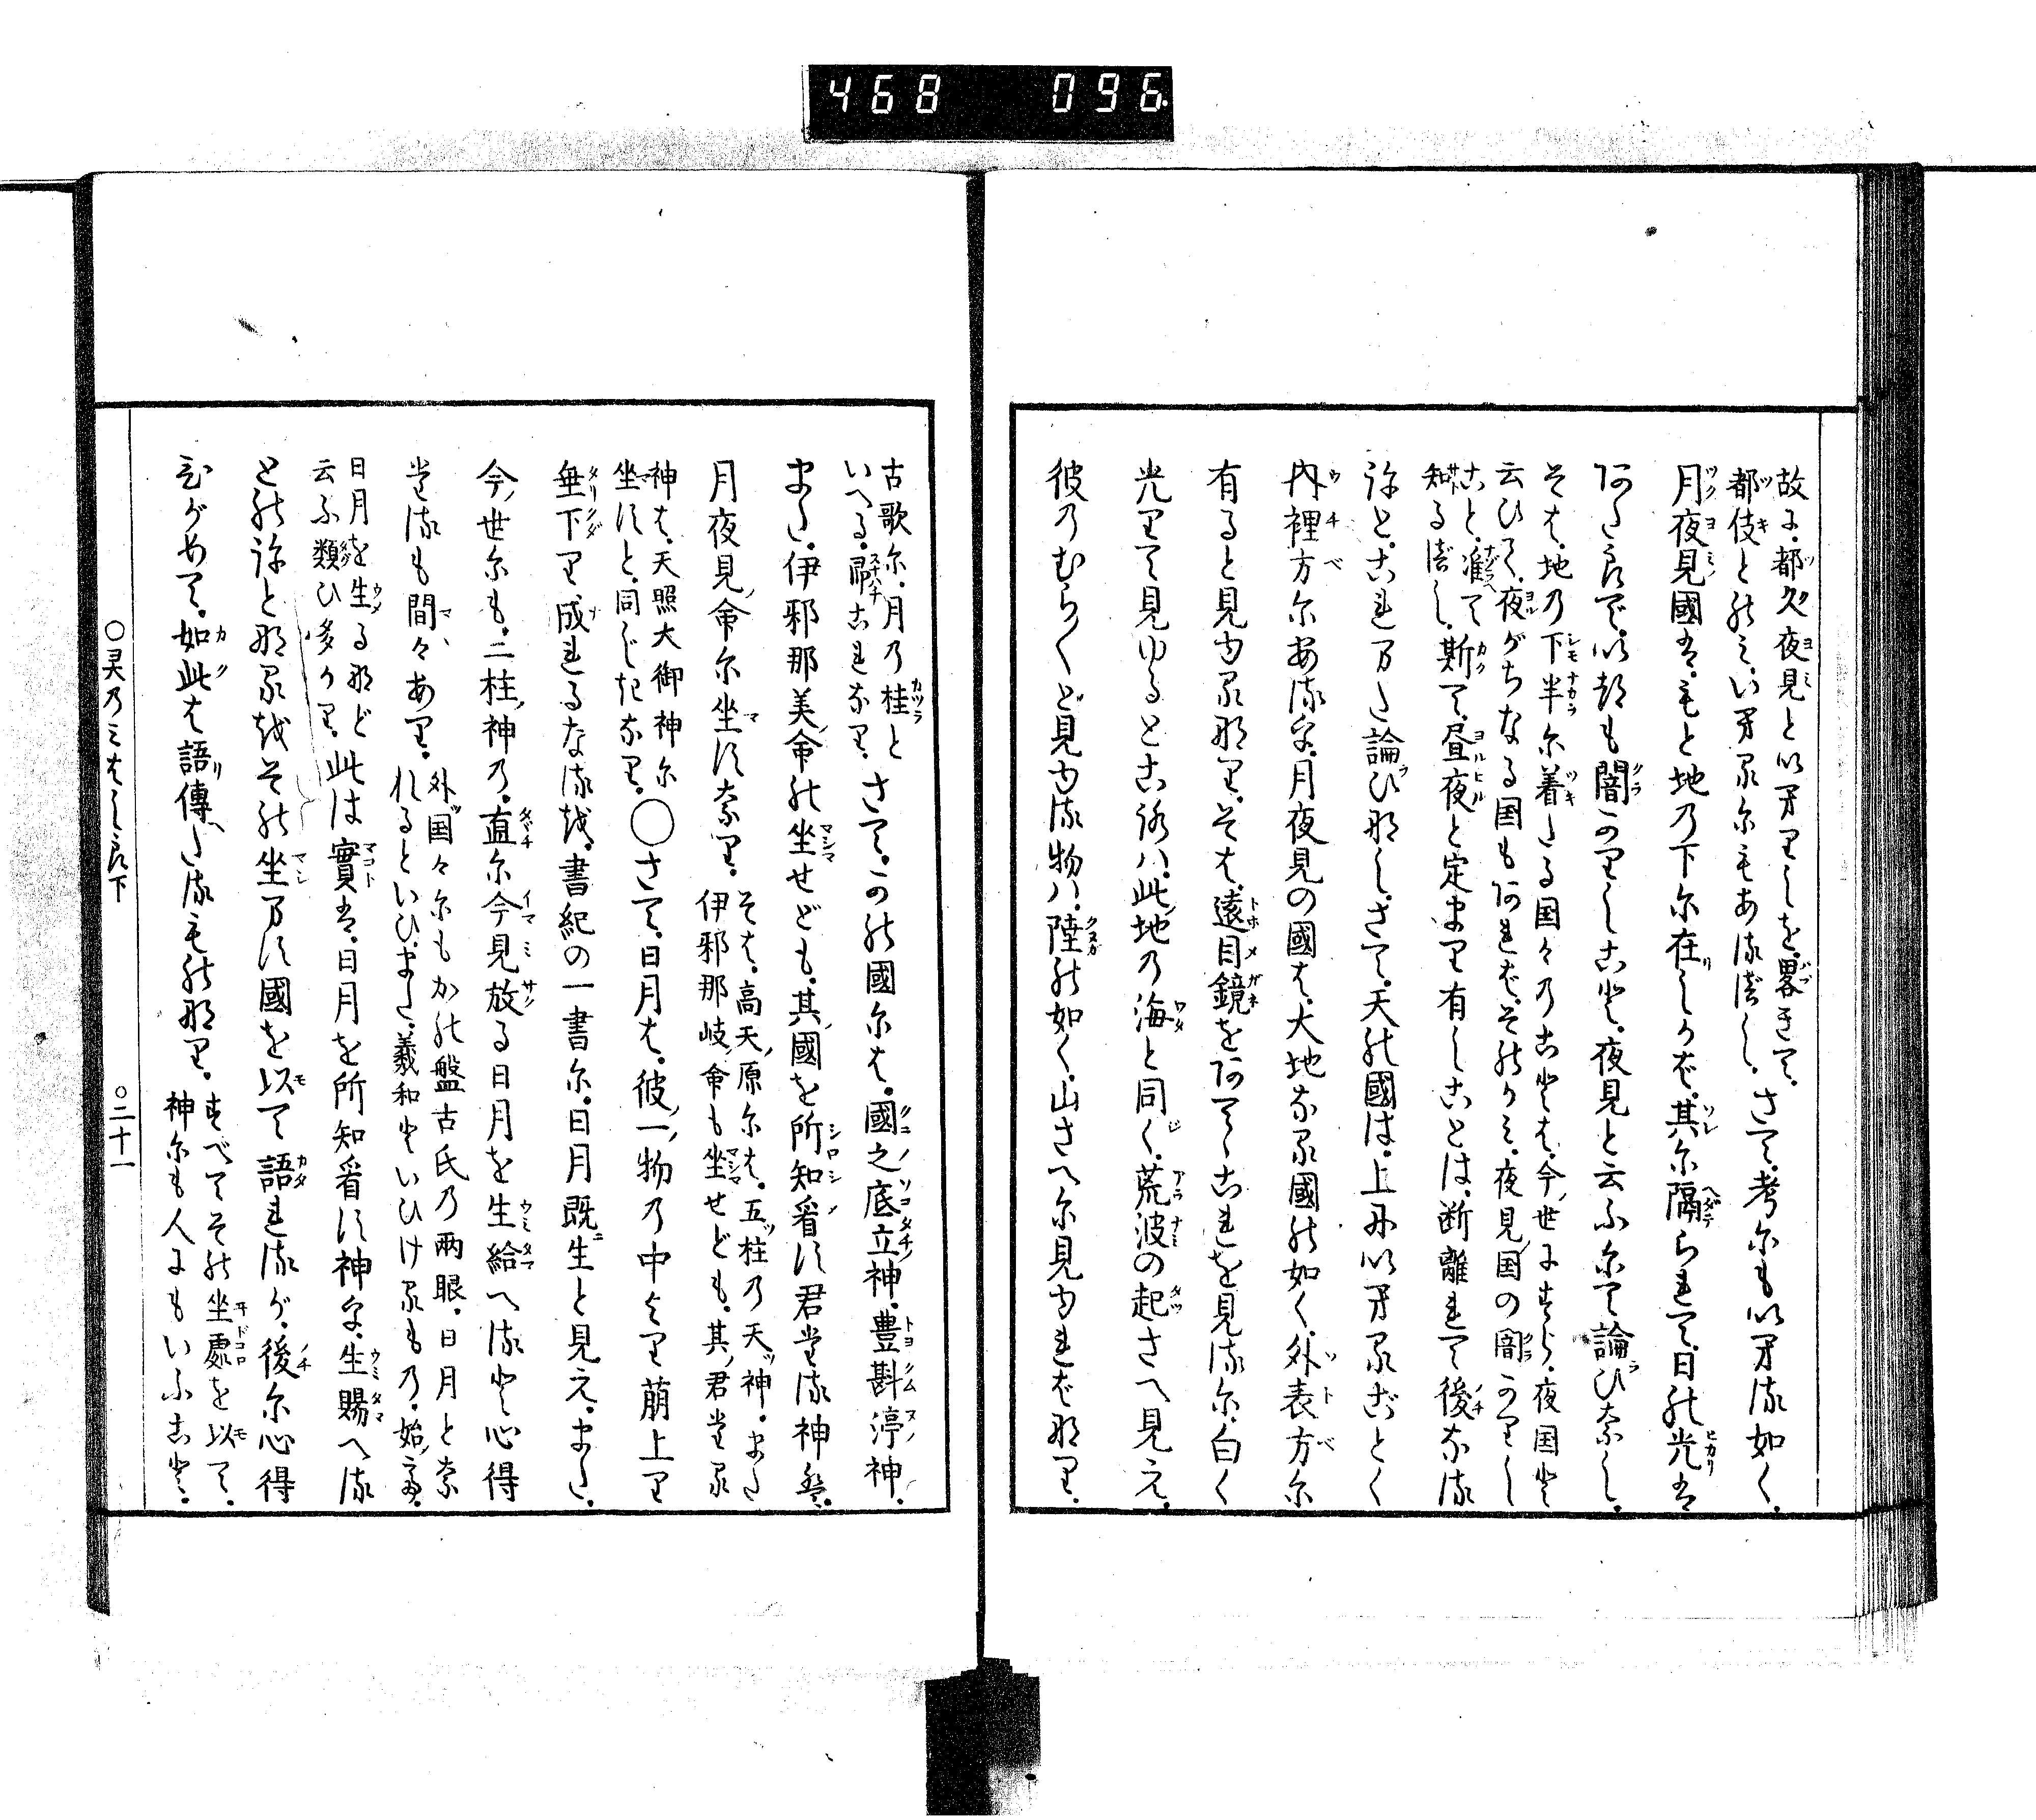 468 096
故に、都久夜見と以ひしを、畧きて、
都伎とのみ、いひ来にもあるべし、さて、考にも以へる如く、
月夜見國は、もと地の下に在しかば、其に隔られて、日の光は
あたらで、以とも闇かりしこと、夜見と云ふにて論ひなし、
そは、地の下半に着たる国々のことは、今世にすら、夜国と
云ひて、夜がちなる国もあれば、そのかみ、夜見国の闇かりし
こと、准て
知るべし、斯て、昼夜と定まり有しことは、断離れて後なる
ぞと、これまた論ひなし、さて、天の國は、上に以へるごとく
内裡方にあるを、月夜見の國は、大地なる國の如く、外表方に
有ると見ゆるなり、そは、遠目鏡をあてゝこれを見るに、白く
光りて見ゆるところハ、此地の海と同く、荒波の起さへ見え、
彼のむら〱ど見ゆる物ハ、陸の如く、山さへに見ゆればなり、
古歌に、月の桂と
いへる、即これなり、さて、かの國には、國之底立神、豊斟渟神、
また、伊邪那美命の坐せども、其國を所知看す君たる神は、
月夜見命に坐すなり、そは、高天原には、五柱の天神、また
伊邪那岐命も坐せども、其君たる
神は、天照大御神に
坐すと、同じきなり、〇さて、日月は、彼一物の中より萠上り
垂下り、成れるなるを、書紀の一書に、日月既生と見え、また、
今世にも、二柱神の、直に今見放る日月を生給へると心得
たるも間々あり、外国々にもかの盤古氏の兩眼、日月とな
れるといひ、また、羲和といひけるもの、始て、
日月を生るなど
云ふ類ひ多かり、此は實は、日月を所知看す神を、生賜へる
とのぞとなるをその坐ます國を以て語れるが、後に心得
ひがめて、如此は語傳たるものなり、すべてその坐處を以て、
神にも人にもいふこと、
〇灵乃みはしら下 〇二十一